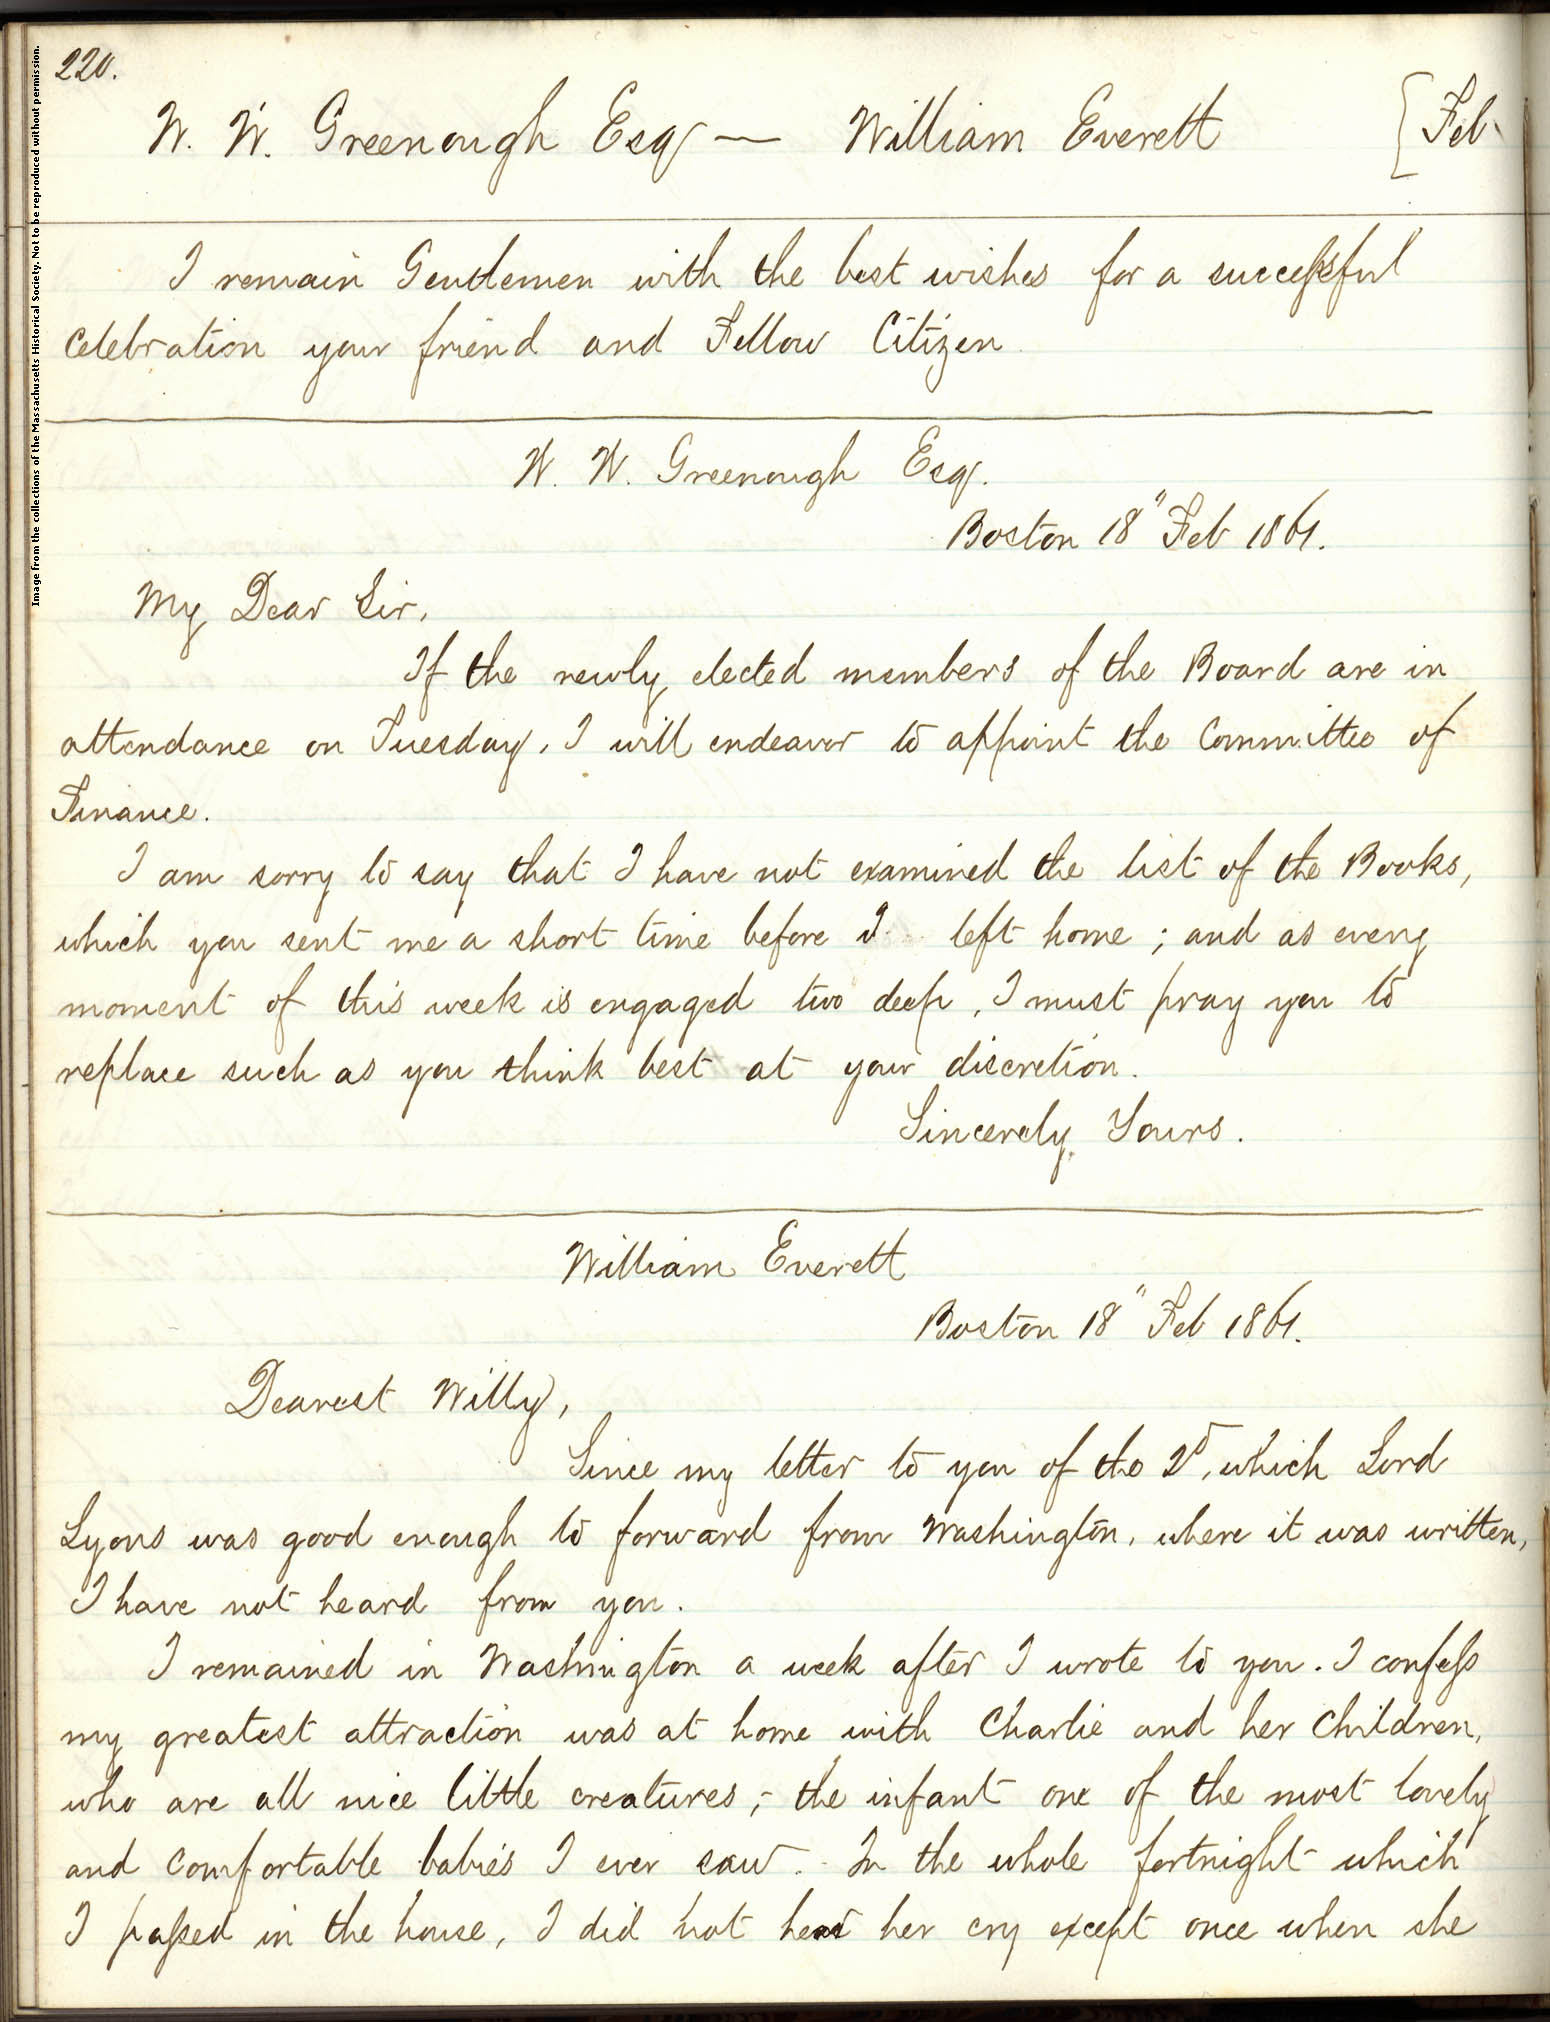 220.
W. W. Greenough Esq — William Everett [Feb
I remain Gentlemen with the best wishes for a successful
celebration your friend and Fellow Citizen
W. W. Greenough Esq.
Boston 18" Feb 1861.
My Dear Sir,
If the newly elected members of the Board are in
attendance on Tuesday, I will endeavor to appoint the Committee of
Finance.
I am sorry to say that I have not examined the list of the Books,
which you sent me a short time before I left home; and as every
moment of this week is engaged two deep, I must pray you to
replace such as you think best at your discretion.
Sincerely Yours.
William Everett
Boston 18" Feb 1861.
Dearest Willy,
Since my letter to you of the 2d, which Lord
Lyons was good enough to forward from Washington, where it was written,
I have not heard from you.
I remained in Washington a week after I wrote to you. I confess
my greatest attraction was at home with Charlie and her Children,
who are all nice little creatures;- the infant one of the most lovely
and comfortable babies I ever saw. - In the whole fortnight which
I passed in the house, I did not hear her cry except once when she
Image from the collections of the Massachusetts Historical Society. Not to be reproduced without permission.